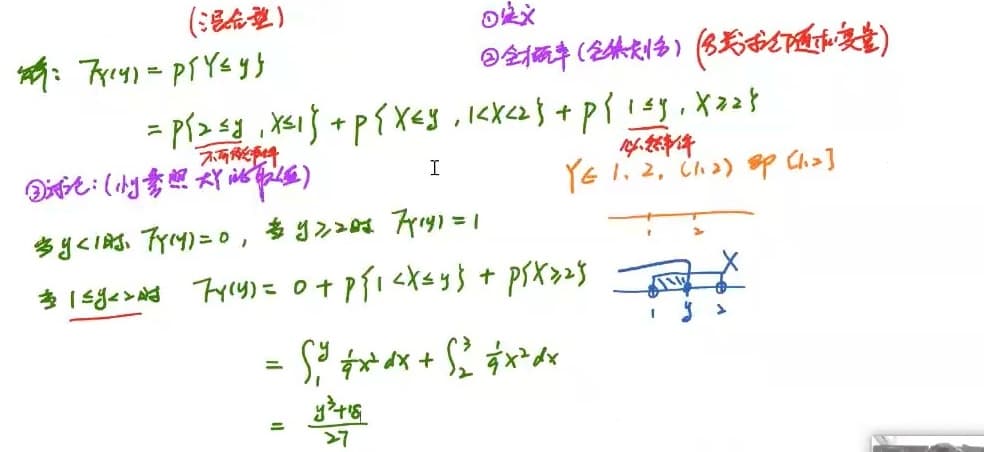 (混合型)
①定义
②全概率(全集划分)(分类讨论随机变量)
解: F_Y(y) = P{Y≤y}
= P{2≤y, X≤1} + P{X≤y, 1<X<2} + P{1≤y, X≥2}
不可能事件
必然事件
③讨论:(小y参照大Y的取值)
Y∈ 1, 2, (1,2) 即 [1,2]
1 2
当 y<1时, F_Y(y)=0, 当 y≥2时 F_Y(y)=1
当 1≤y<2时 F_Y(y) = 0 + P{1<X≤y} + P{X≥2}
X
1 y 2
= ∫₁^y 1/9 x² dx + ∫₂³ 1/9 x² dx
= (y³+18)/27